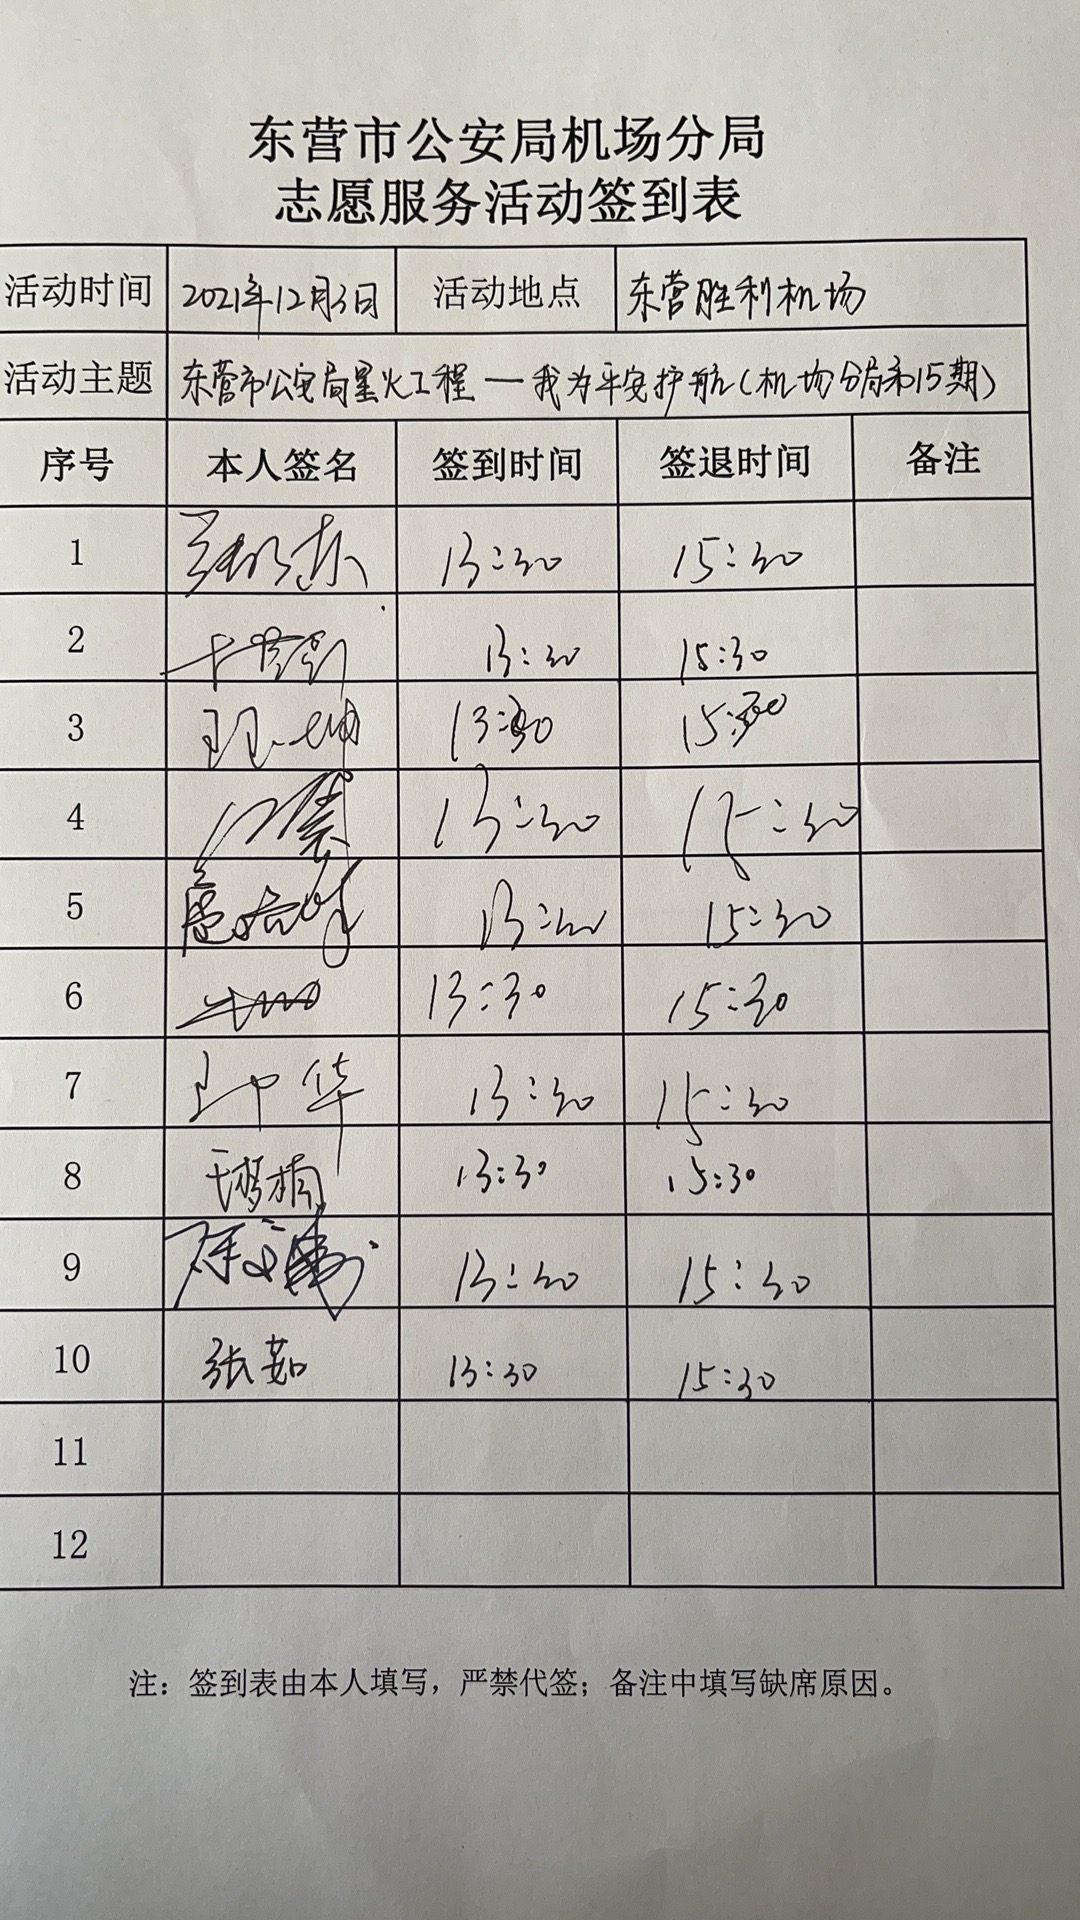 东营市公安局机场分局
志愿服务活动签到表
活动时间 2021年12月3日 活动地点 东营胜利机场
活动主题 东营市公安局星火工程—我为平安护航(机场分局第15期)
序号 本人签名 签到时间 签退时间 备注
1 13:30 15:30
2 13:30 15:30
3 13:30 15:30
4 13:30 15:30
5 13:30 15:30
6 13:30 15:30
7 王中华 13:30 15:30
8 13:30 15:30
9 13:30 15:30
10 张茹 13:30 15:30
11
12
注：签到表由本人填写，严禁代签；备注中填写缺席原因。